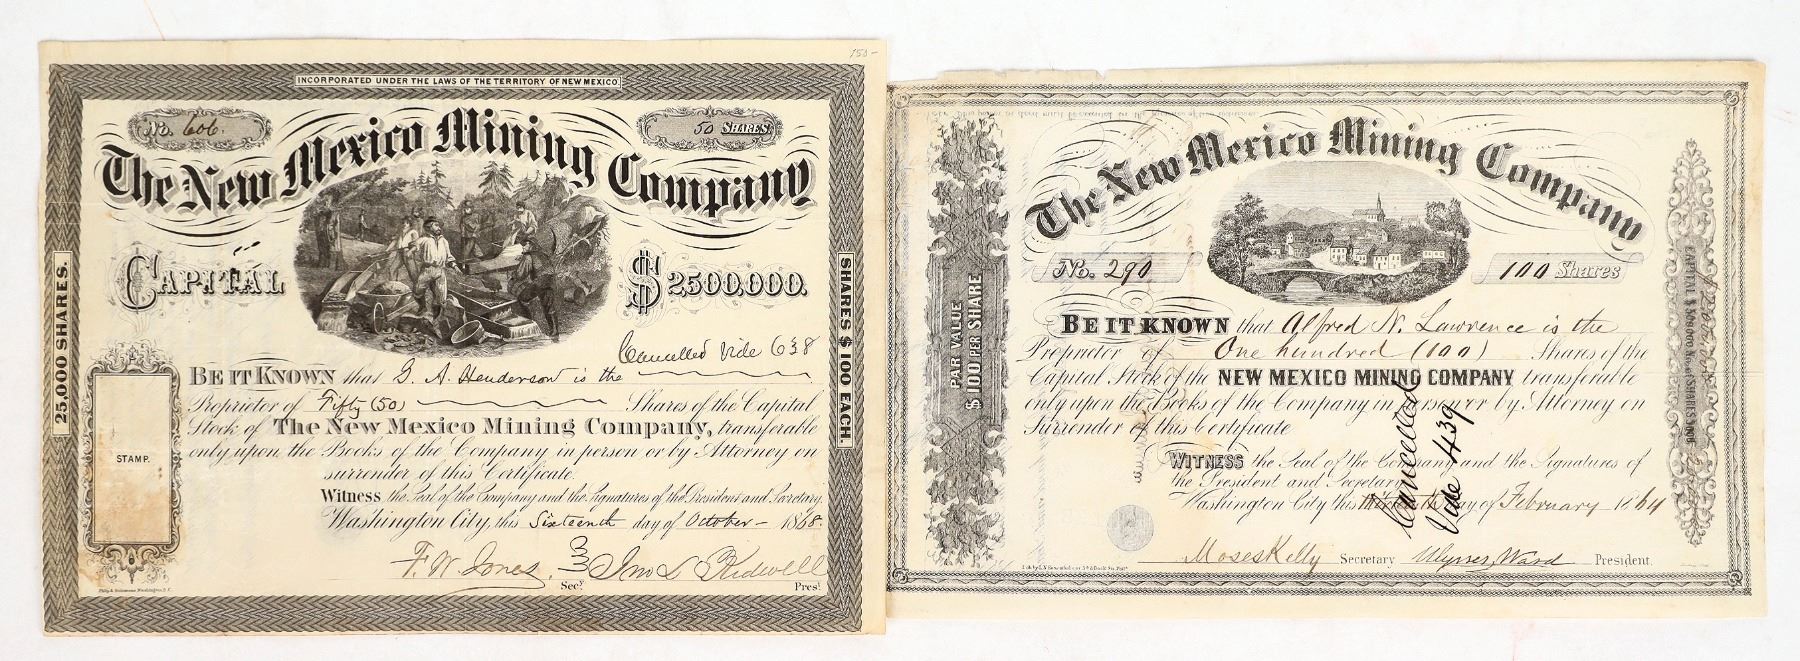 150-
INCORPORATED UNDER THE LAWS OF THE TERRITORY OF NEW MEXICO.
No. 606.
50 SHARES.
The New Mexico Mining Company
CAPITAL
$2500.000.
25,000 SHARES.
SHARES $100 EACH.
Cancelled Vide 638
BE IT KNOWN that G. A. Henderson is the
Proprietor of Fifty (50) Shares of the Capital
Stock of The New Mexico Mining Company, transferable
only upon the Books of the Company in person or by Attorney on
surrender of this Certificate.
STAMP.
Witness the Seal of the Company and the Signatures of the President and Secretary.
Washington City, this Sixteenth day of October - 1868.
F. W. Jones Secy.
Jno L Kidwell Prest.
The New Mexico Mining Company
No. 290
100 Shares
PAR VALUE
$100 PER SHARE
BE IT KNOWN that Alfred N. Lawrence is the
Proprietor of One hundred (100) Shares of the
Capital Stock of the NEW MEXICO MINING COMPANY transferable
only upon the Books of the Company in person or by Attorney on
Surrender of this Certificate
Cancelled
Vide 439
WITNESS the Seal of the Company and the Signatures of
the President and Secretary
Washington City this day of February 1864
Moses Kelly Secretary
Ward President.